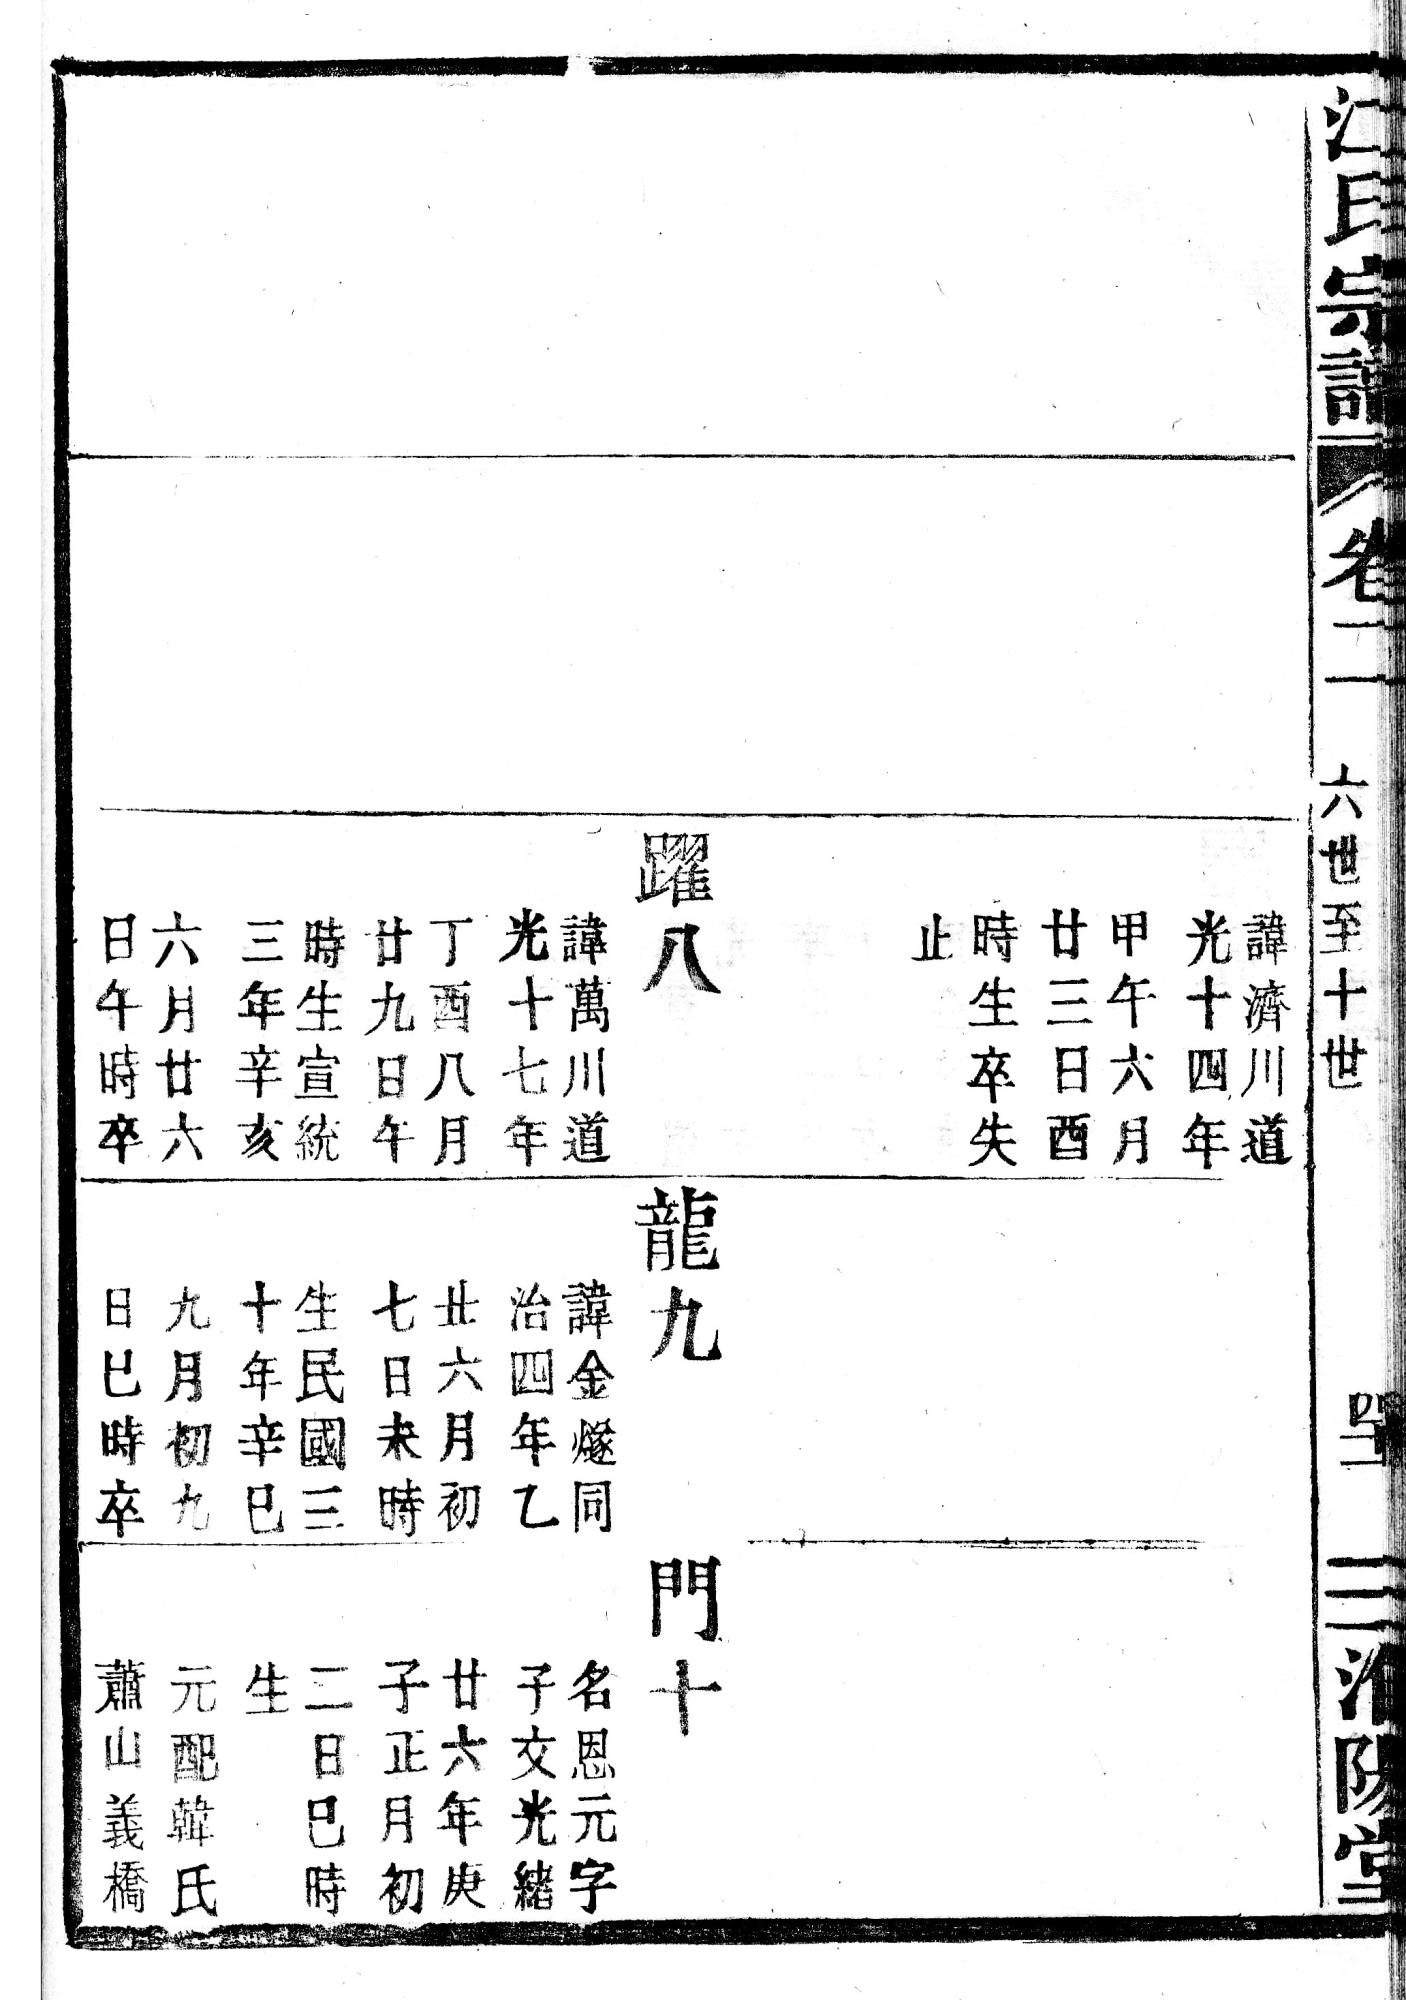 江氏宗譜
卷二
六世至十世
四十二
淮陽堂
諱濟川道
光十四年
甲午六月
廿三日酉
時生卒失
止
躍八
諱萬川道
光十七年
丁酉八月
廿九日午
時生宣統
三年辛亥
六月廿六
日午時卒
龍九
諱金燧同
治四年乙
丑六月初
七日未時
生民國三
十年辛巳
九月初九
日巳時卒
門十
名恩元字
子文光緒
廿六年庚
子正月初
二日巳時
生
元配韓氏
蕭山義橋